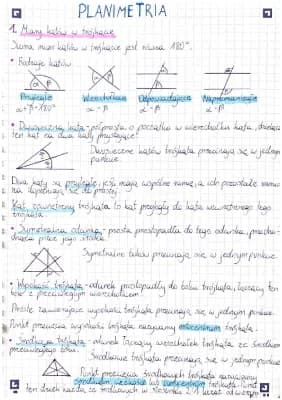 PLANIMETRIA
1. Miary kątów w trójkącie
Suma miar kątów w trójkącie jest równa 180°.
• Rodzaje kątów
α β α β α β α β
Przyległe Wierzchołkowe Odpowiadające Naprzemianległe
α+β=180° α=β α=β α=β
• Dwusieczna kąta - półprosta o początku w wierzchołku kąta, dzieląca
ten kąt na dwa kąty przystające.
Dwusieczne kątów trójkąta przecinają się w jednym
punkcie.
Dwa kąty są przyległe, jeśli mają wspólne ramię, a ich pozostałe ramiona
się dopełniają do prostej.
Kąt zewnętrzny trójkąta to kąt przyległy do kąta wewnętrznego tego
trójkąta.
• Symetralna odcinka - prosta prostopadła do tego odcinka, przecho-
dząca przez jego środek.
Symetralne boków przecinają się w jednym punkcie.
• Wysokość trójkąta - odcinek prostopadły do boku trójkąta, łączący ten
bok z przeciwległym wierzchołkiem.
Proste zawierające wysokości trójkąta przecinają się w jednym punkcie.
Punkt przecięcia wysokości trójkąta nazywamy ortocentrum trójkąta.
• Środkowa trójkąta - odcinek łączący wierzchołek trójkąta ze środkiem
przeciwległego boku.
Środkowe trójkąta przecinają się w jednym punkcie
Punkt przecięcia środkowych trójkąta nazywamy
środkiem ciężkości lub trójkąta. Punkt
ten dzieli każdą ze środkowych w stosunku 2:1 licząc od